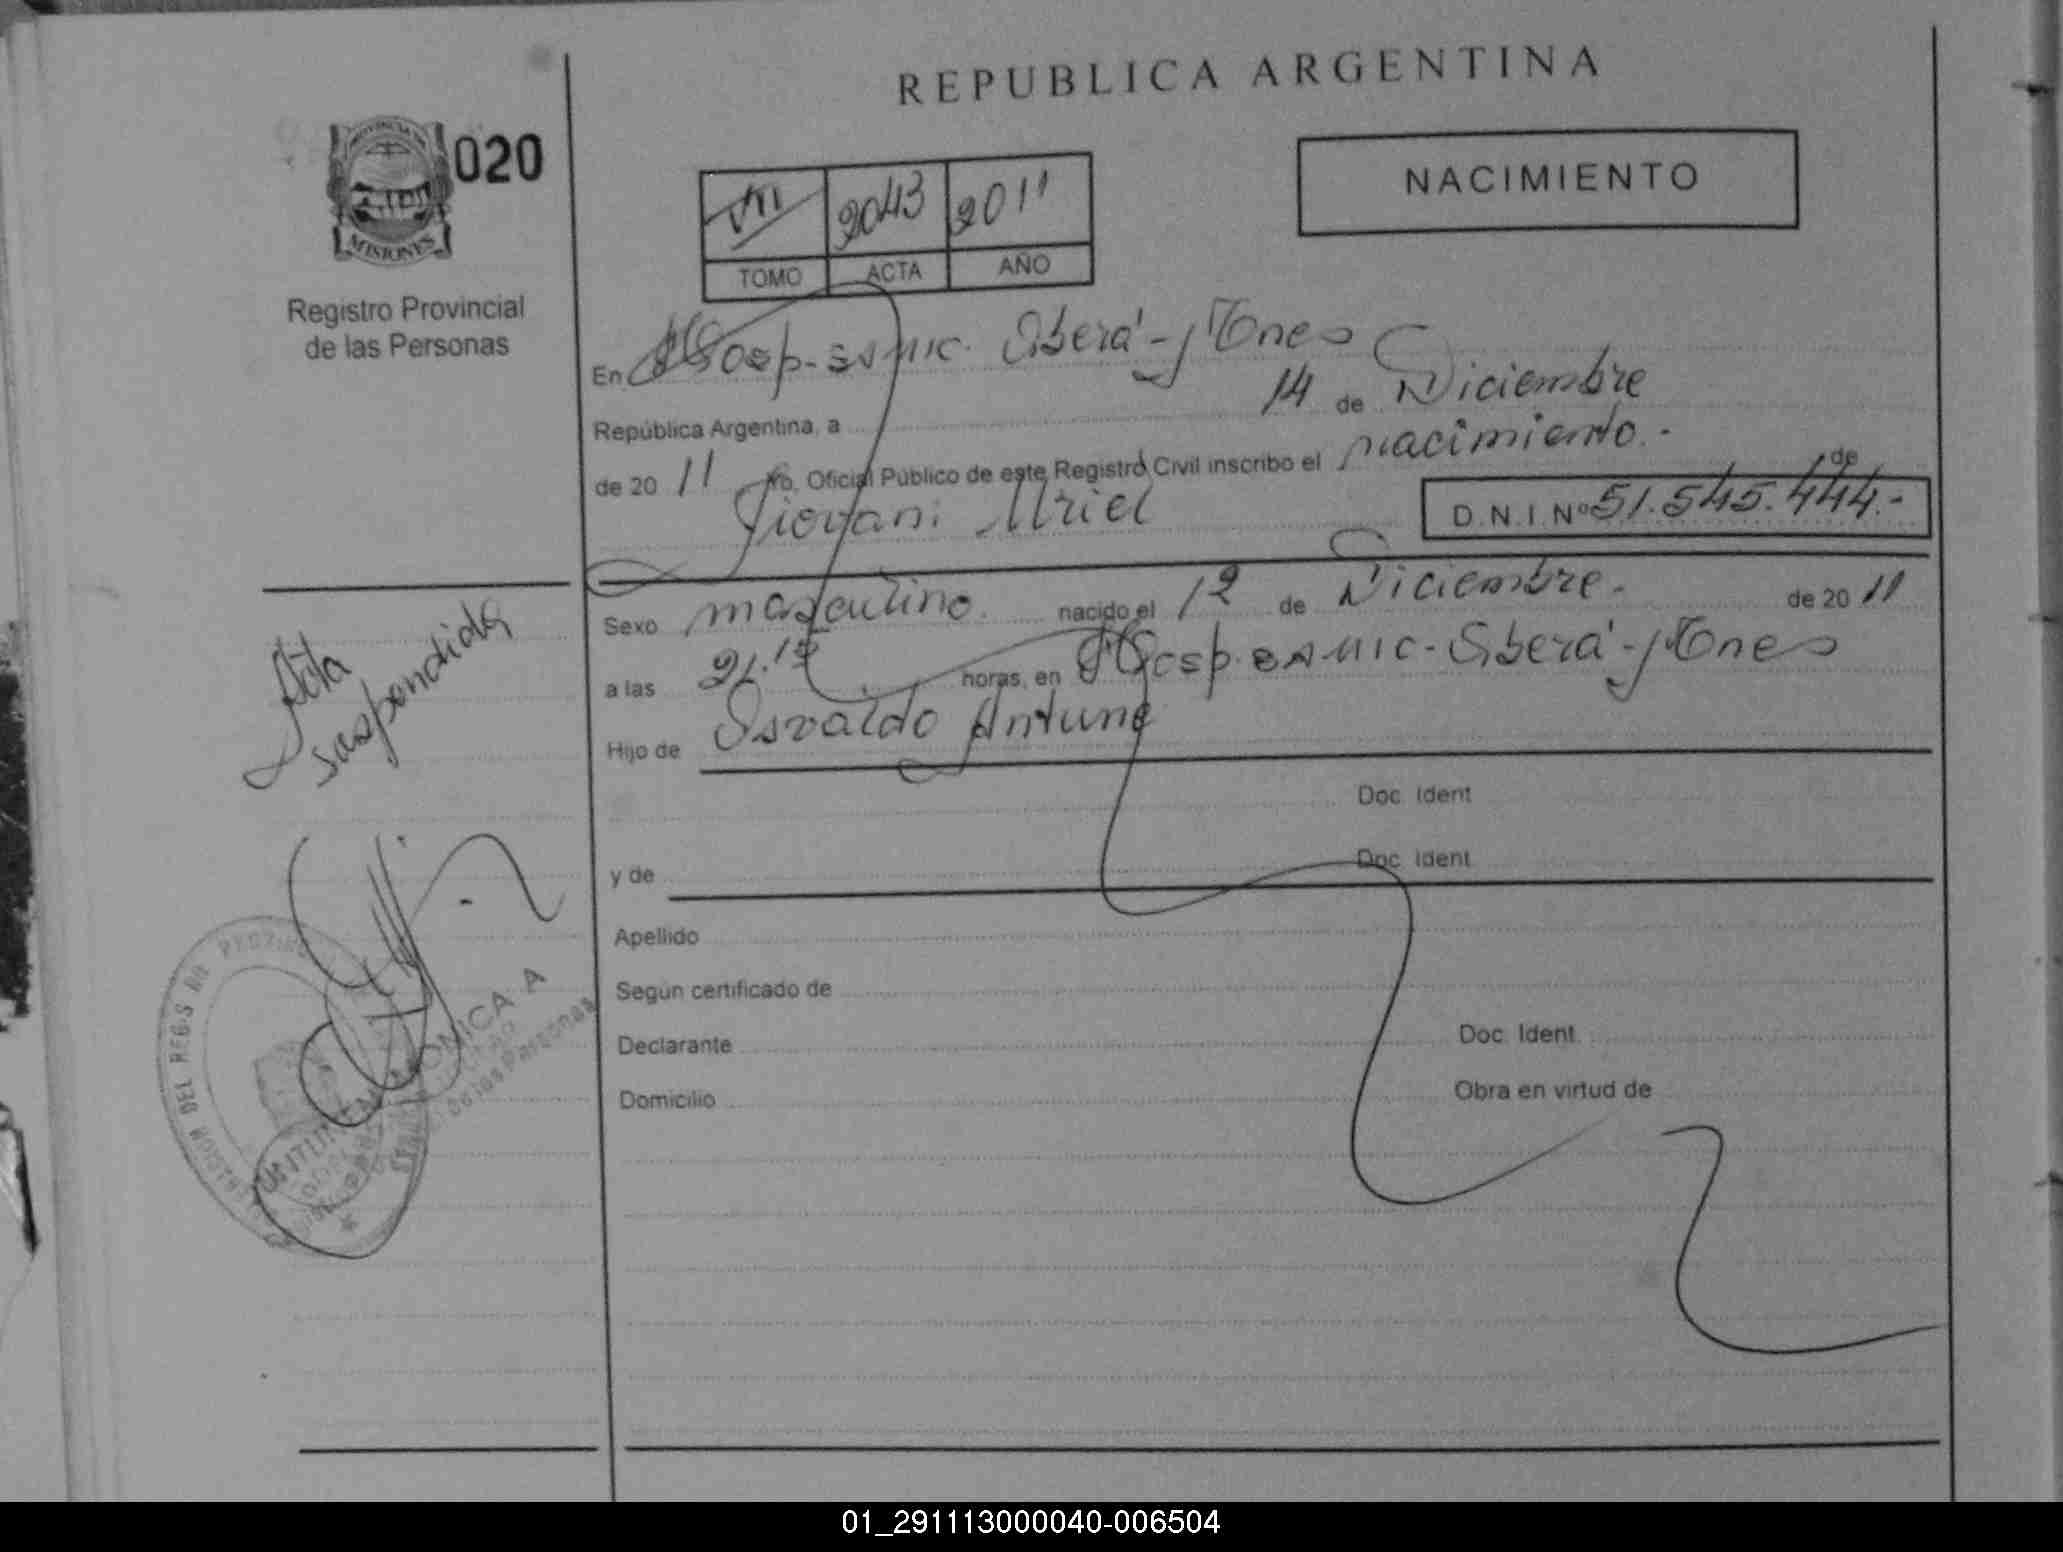 REPUBLICA ARGENTINA
020
NACIMIENTO
VII 2043 2011
TOMO ACTA AÑO
MISIONES
Registro Provincial
de las Personas
En Hosp. SAMIC. Oberá - Mnes
República Argentina, a 14 de Diciembre
de 2011 Yo, Oficial Público de este Registro Civil inscribo el nacimiento.-
de
Giovani Uriel D.N.I. Nº 51.545.444.-
Sexo masculino. nacido el 12 de Diciembre. de 2011
a las 21.15 horas, en Hosp. SAMIC - Oberá - Mnes
Hijo de Osvaldo Antune
Doc. Ident
y de Doc. Ident
Apellido
Según certificado de
Declarante Doc. Ident.
Domicilio Obra en virtud de
Acta
suspendida
MONICA A
de las Personas
01_291113000040-006504